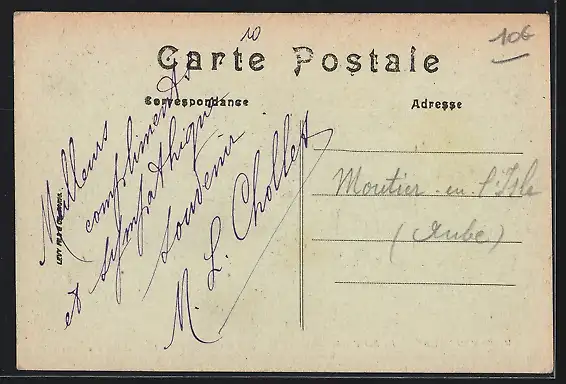 10
10€
Carte Postale
Correspondance
Adresse
Meilleurs
compliments
et sympathique
souvenir
M. L. Chollet
Moutier-en-l'Isle
(Aube)
LEVY FILS &